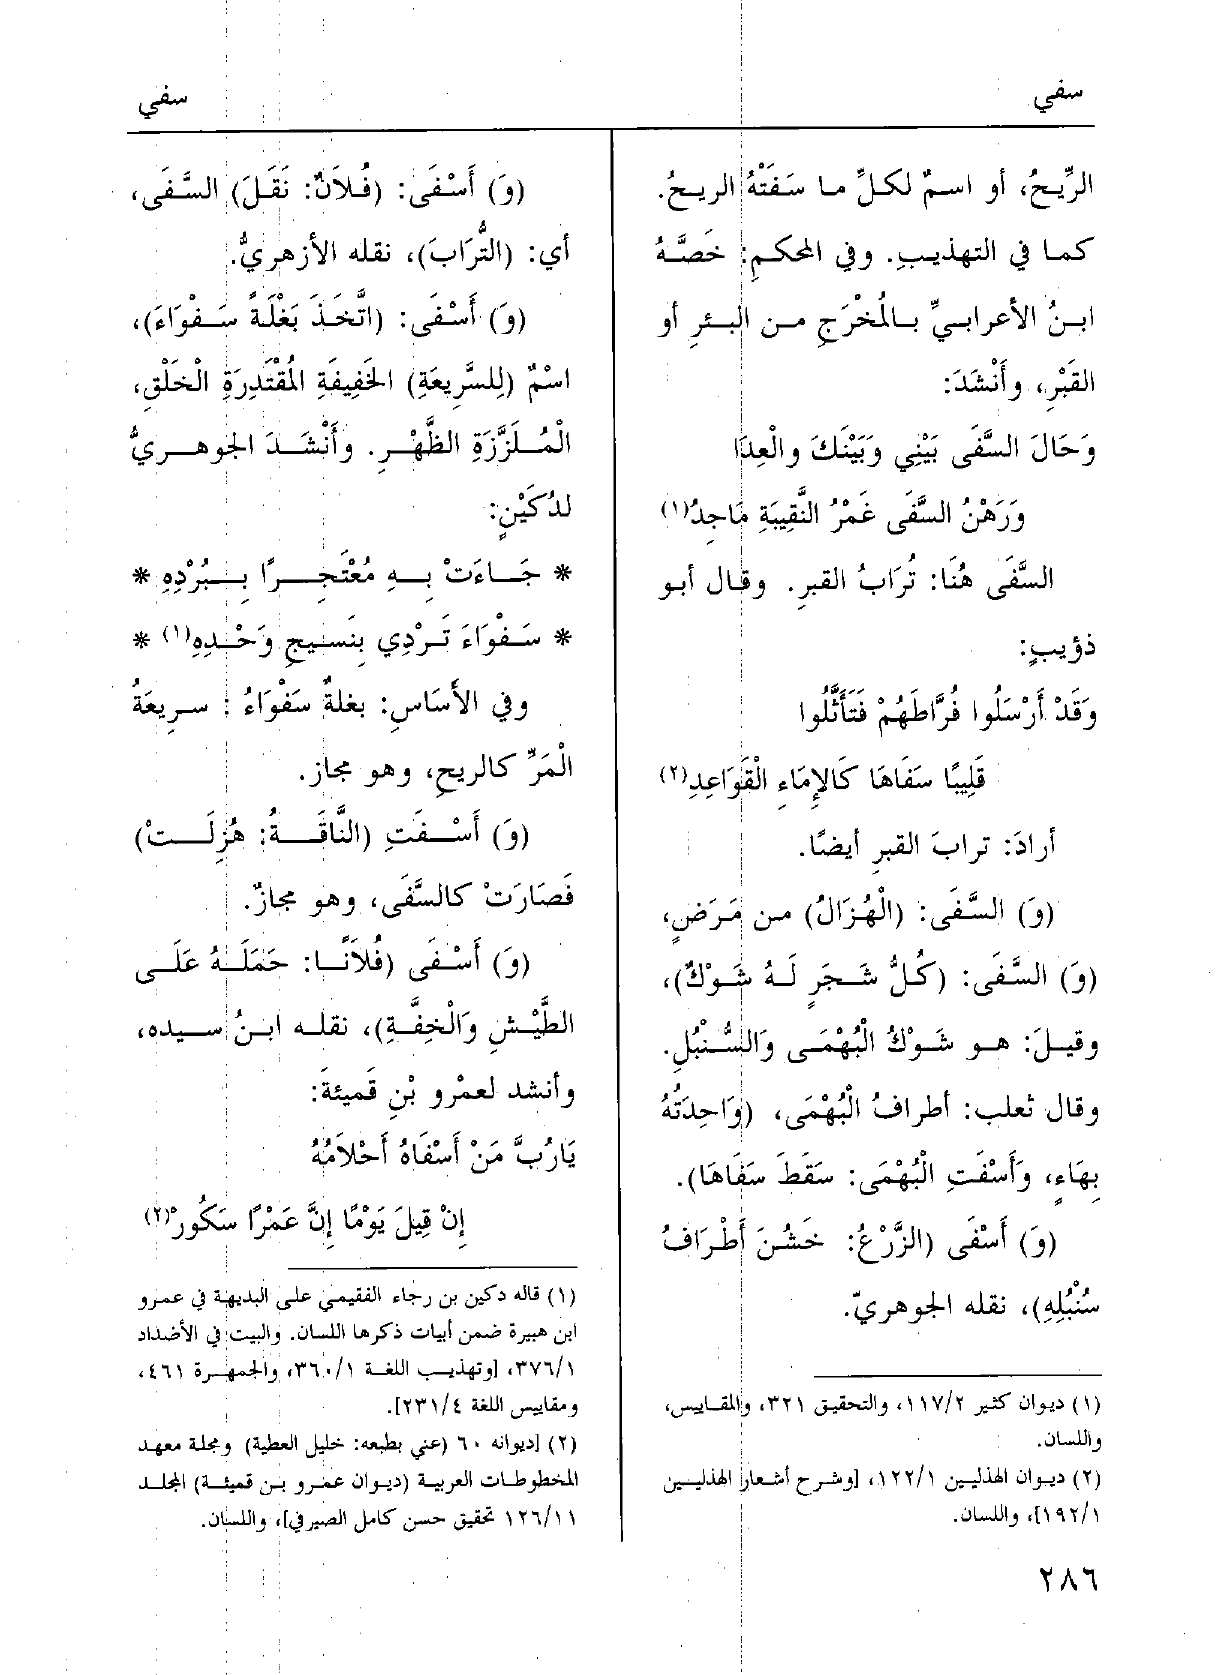 سفي
سفي
الرِّيحُ، أو اسمٌ لكلِّ ما سَفَتْهُ الريحُ.
كما في التهذيبِ. وفي المحكمِ: خَصَّهُ
ابنُ الأعرابيِّ بالمُخْرَجِ من البئرِ أو
القَبْرِ، وأَنْشَدَ:
وَحَالَ السَّفَى بَيْنِي وَبَيْنَكَ والْعِدَا
وَرَهْنُ السَّفَى غَمْرُ النَّقِيبَةِ مَاجِدُ(١)
السَّفَى هُنَا: تُرَابُ القبرِ. وقال أبو
ذؤيبٍ:
وَقَدْ أَرْسَلُوا فُرَّاطَهُمْ فَتَأَثَّلُوا
قَلِيبًا سَفَاهَا كَالإِمَاءِ الْقَوَاعِدِ(٢)
أرادَ: ترابَ القبرِ أيضًا.
(وَ) السَّفَى: (الْهُزَالُ) من مَرَضٍ،
(وَ) السَّفَى: (كُلُّ شَجَرٍ لَهُ شَوْكٌ)،
وقيلَ: هو شَوْكُ الْبُهْمَى وَالسُّنْبُلِ.
وقال ثعلب: أطرافُ الْبُهْمَى، (وَاحِدَتُهُ
بِهَاءٍ، وَأَسْفَتِ الْبُهْمَى: سَقَطَ سَفَاهَا).
(وَ) أَسْفَى (الزَّرْعُ: خَشُنَ أَطْرَافُ
سُنْبُلِهِ)، نقله الجوهريّ.
(١) ديوان كثير ١١٧/٢، والتحقيق ٣٢١، والمقاييس،
واللسان.
(٢) ديوان الهذليين ١٢٢/١، [وشرح أشعار الهذليين
١٩٢/١]، واللسان.
(وَ) أَسْفَى: (فُلاَنٌ: نَقَلَ) السَّفَى،
أي: (التُّرَابَ)، نقله الأزهريُّ.
(وَ) أَسْفَى: (اتَّخَذَ بَغْلَةً سَفْوَاءَ)،
اسْمٌ (لِلسَّرِيعَةِ) الخَفِيفَةِ المُقْتَدِرَةِ الْخَلْقِ،
الْمُلَزَّزَةِ الظَّهْرِ. وأَنْشَدَ الجوهريُّ
لدُكَيْنٍ:
* جَاءَتْ بِهِ مُعْتَجِرًا بِبُرْدِهِ *
* سَفْوَاءَ تَرْدِي بِنَسيجِ وَحْدِهِ(١) *
وفي الأَسَاسِ: بغلةٌ سَفْوَاءُ: سريعَةُ
الْمَرِّ كالريحِ، وهو مجاز.
(وَ) أَسْفَتِ (النَّاقَةُ: هُزِلَتْ)
فَصَارَتْ كالسَّفَى، وهو مجازٌ.
(وَ) أَسْفَى (فُلاَنًا: حَمَلَهُ عَلَى
الطَّيْشِ وَالْخِفَّةِ)، نقله ابنُ سيده،
وأنشد لعمْرِو بْنِ قَميئةَ:
يَارُبَّ مَنْ أَسْفَاهُ أَحْلاَمُهُ
إِنْ قِيلَ يَوْمًا إِنَّ عَمْرًا سَكُورْ(٢)
(١) قاله دكين بن رجاء الفقيمي على البديهة في عمرو
ابن هبيرة ضمن أبيات ذكرها اللسان. والبيت في الأضداد
٣٧٦/١، [وتهذيب اللغة ٣٦٠/١، والجمهرة ٤٦١،
ومقاييس اللغة ٢٣١/٤].
(٢) [ديوانه ٦٠ (عني بطبعه: خليل العطية) ومجلة معهد
المخطوطات العربية (ديوان عمرو بن قميئة) المجلد
١٢٦/١١ تحقيق حسن كامل الصيرفي]، واللسان.
٢٨٦